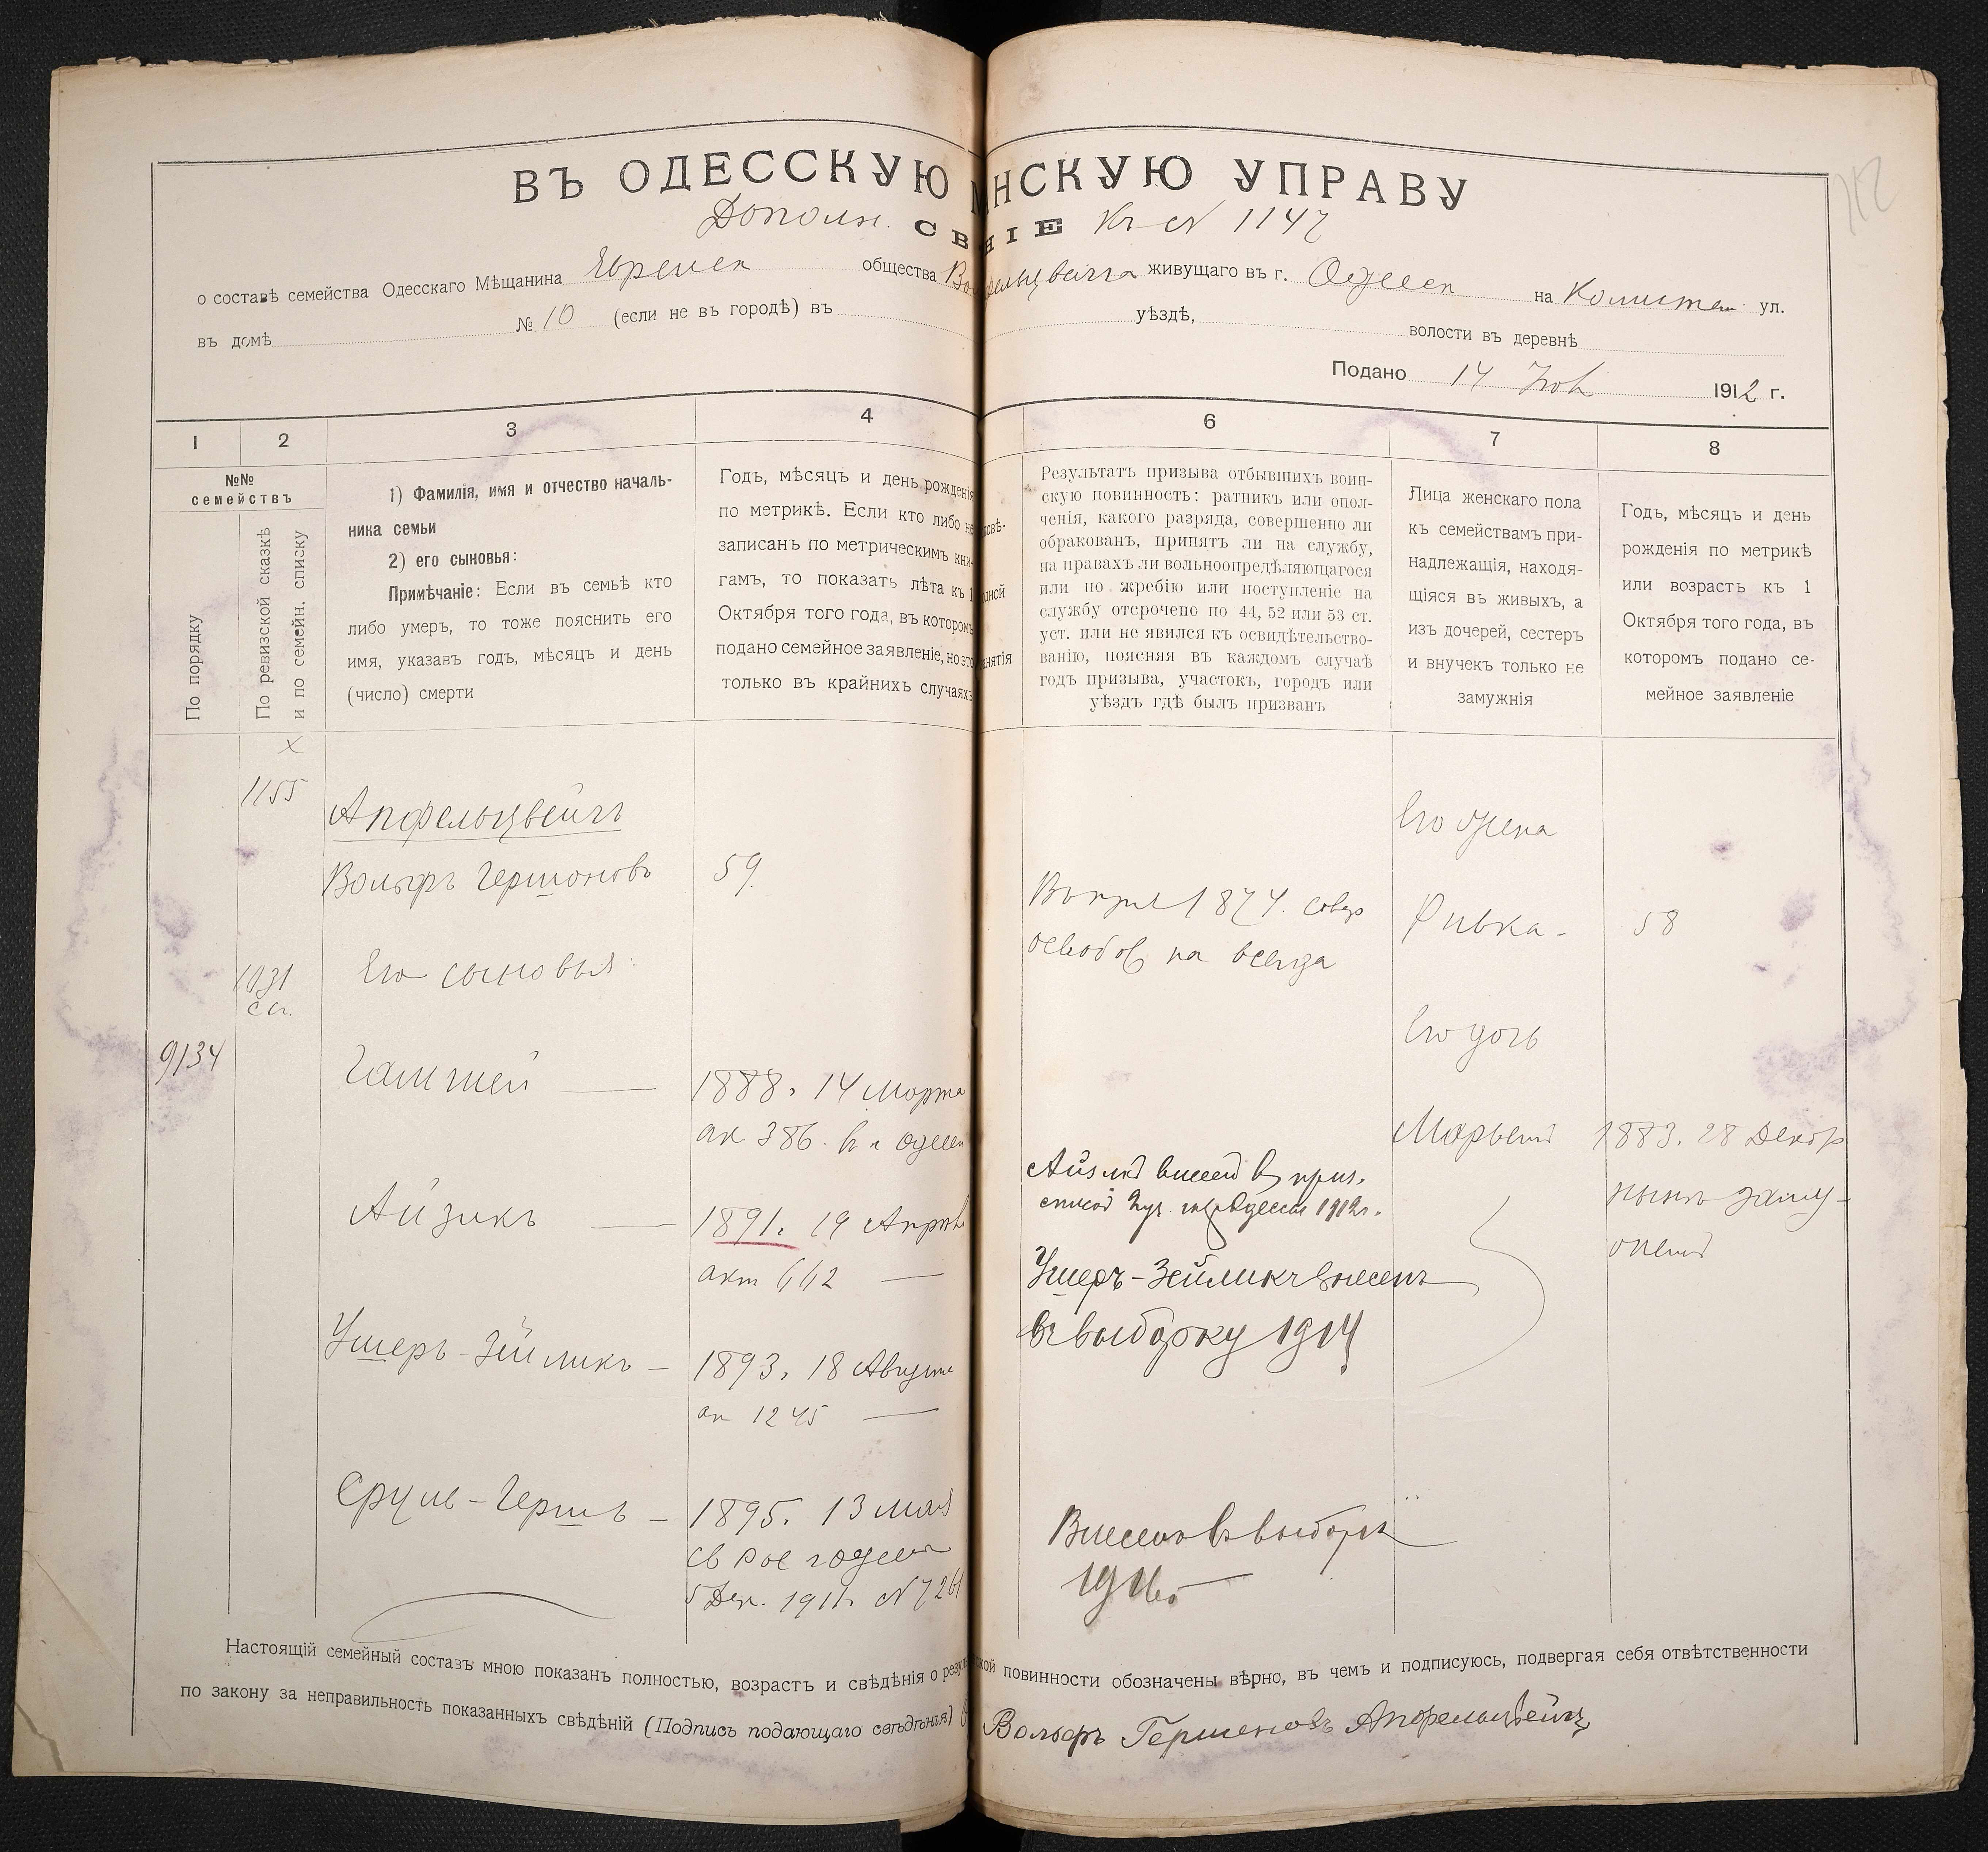 ВЪ ОДЕССКУЮ НСКУЮ УПРАВУ
Дополн. СВ НІЕ къ № 1147
о составѣ семейства Одесскаго Мѣщанина Еврейск общества живущаго въ г. Одессѣ на ул.
въ домѣ № 10 (если не въ городѣ) въ уѣздѣ, волости въ деревнѣ
Подано 14 1912 г.
1 2 3 4 6 7 8
№№
семействъ
По порядку
По ревизской сказкѣ
и по семейн. списку
1) Фамилія, имя и отчество началь-
ника семьи
2) его сыновья:
Примѣчаніе: Если въ семьѣ кто
либо умеръ, то тоже пояснить его
имя, указавъ годъ, мѣсяцъ и день
(число) смерти
Годъ, мѣсяцъ и день рожденія
по метрикѣ. Если кто либо не
записанъ по метрическимъ кни-
гамъ, то показать лѣта къ 1
Октября того года, въ которомъ
подано семейное заявленіе, но это
только въ крайнихъ случаяхъ
повѣ-
одной
анятія
Результатъ призыва отбывшихъ воин-
скую повинность: ратникъ или опол-
ченія, какого разряда, совершенно ли
обракованъ, принятъ ли на службу,
на правахъ ли вольноопредѣляющагося
или по жребію или поступленіе на
службу отсрочено по 44, 52 или 53 ст.
уст. или не явился къ освидѣтельство-
ванію, поясняя въ каждомъ случаѣ
годъ призыва, участокъ, городъ или
уѣздъ гдѣ былъ призванъ
Лица женскаго пола
къ семействамъ при-
надлежащія, находя-
щіяся въ живыхъ, а
изъ дочерей, сестеръ
и внучекъ только не
замужнія
Годъ, мѣсяцъ и день
рожденія по метрикѣ
или возрастъ къ 1
Октября того года, въ
которомъ подано се-
мейное заявленіе
1155
Апфельцвейгъ
Вольфъ Гершоновъ 59
Его жена
Въ 1874. совер
освобод на всегда
Ривка - 58
1031
Его сыновья:
Его дочь
9134
1888. 14 Марта
ак 386. в г. Одессѣ
Марьемъ 1883. 28 Декабр
нынѣ заму-
Айзикъ — 1891 г. 19 Апрѣл
акт 612 —
Айзикъ внесенъ въ приз.
список Одессы 1912 г.
Ушеръ-Зейликъ — 1893. 18 Августа
ак 1245 —
Ушеръ-Зейликъ внесенъ
въ выборку 1914
Сруль-Гершъ — 1895. 13 мая
5 Дек. 1911 г. № 7261
Внесенъ въ выборк
1916
Настоящій семейный составъ мною показанъ полностью, возрастъ и свѣдѣнія о резуль ской повинности обозначены вѣрно, въ чемъ и подписуюсь, подвергая себя отвѣтственности
по закону за неправильность показанныхъ свѣдѣній (Подпись подающаго свѣдѣнія) Вольфъ Гершоновъ Апфельцвейгъ